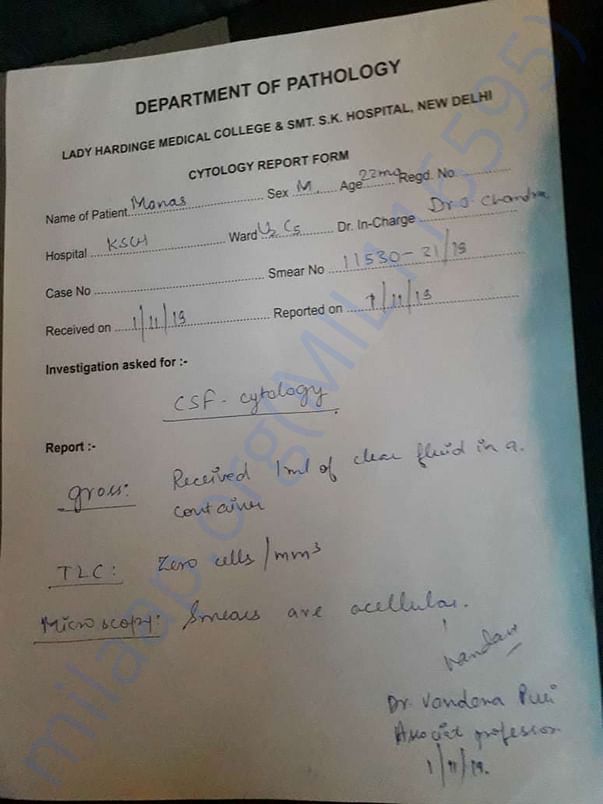 DEPARTMENT OF PATHOLOGY
LADY HARDINGE MEDICAL COLLEGE & SMT. S.K. HOSPITAL, NEW DELHI
CYTOLOGY REPORT FORM
Name of Patient Manas Sex M. Age 22mo Regd. No.
Hospital KSCH Ward Dr. In-Charge Dr. J. Chandra
Case No Smear No 11530-21/19
Received on 1/11/19 Reported on 1/11/19
Investigation asked for :-
CSF - cytology
Report :-
gross: Received 1ml of clear fluid in a
container
TLC: Zero cells/mm3
Microscopy: Smears are acellular.
Vandana
Dr. Vandana Puri
Associate professor
1/11/19.
milaap.org(MIL116595)